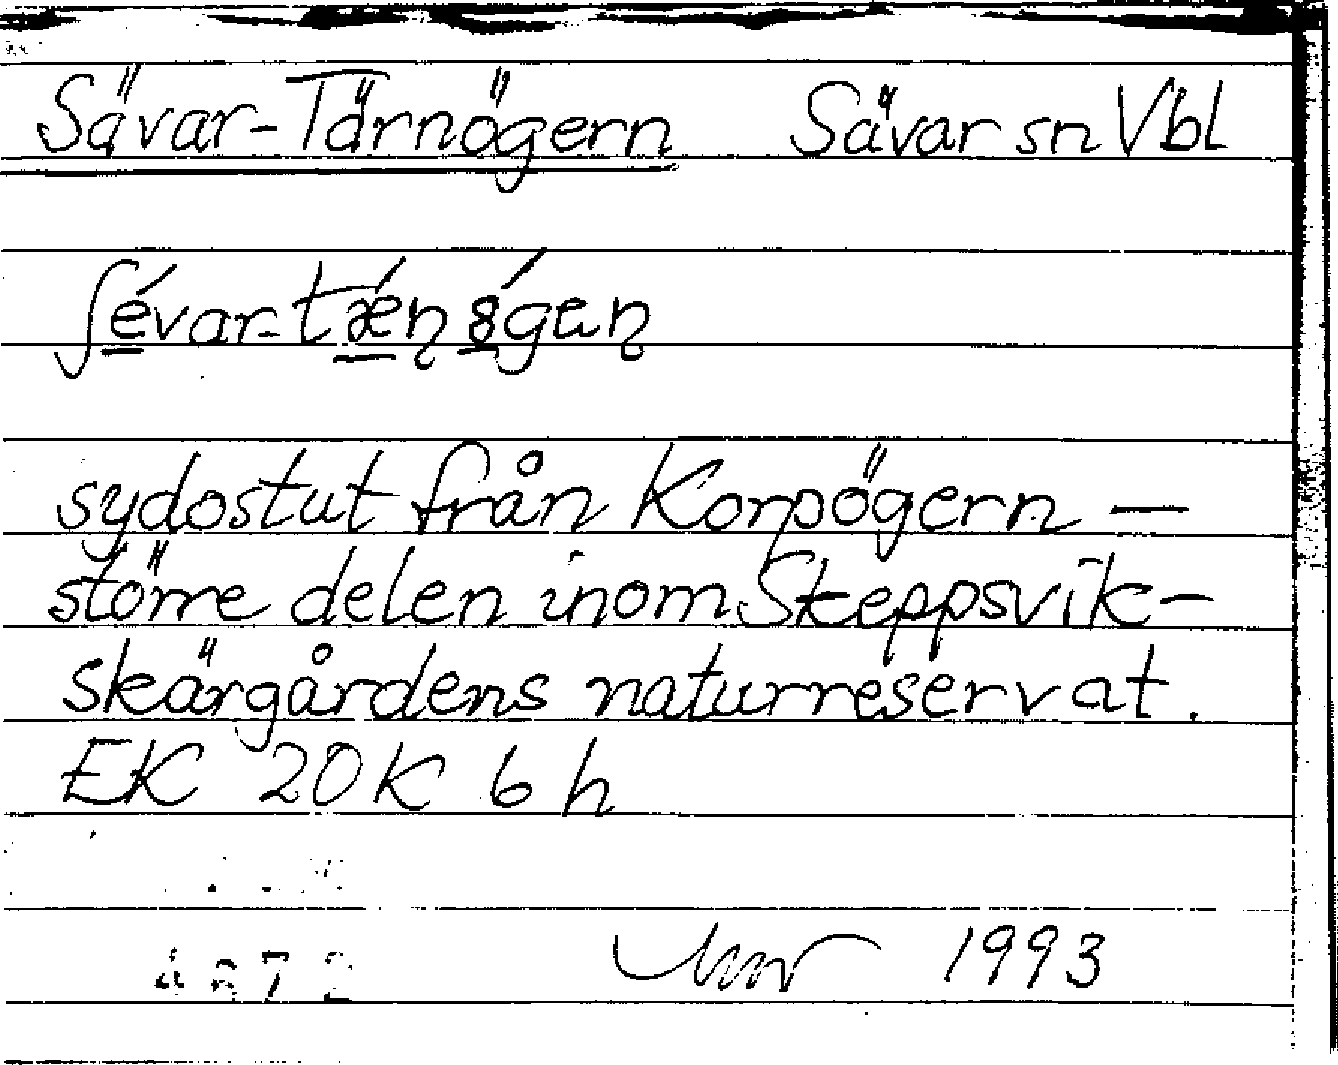 Sävar-Tärnögern Sävar sn Vbl
sydostut från Korpögern —
större delen inom Skeppsvik-
skärgårdens naturreservat.
EK 20K 6 h
1993